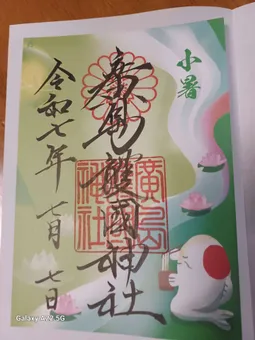 小暑
廣島護國神社
廣島護國神社
令和七年 七月 七日
Galaxy A22 5G